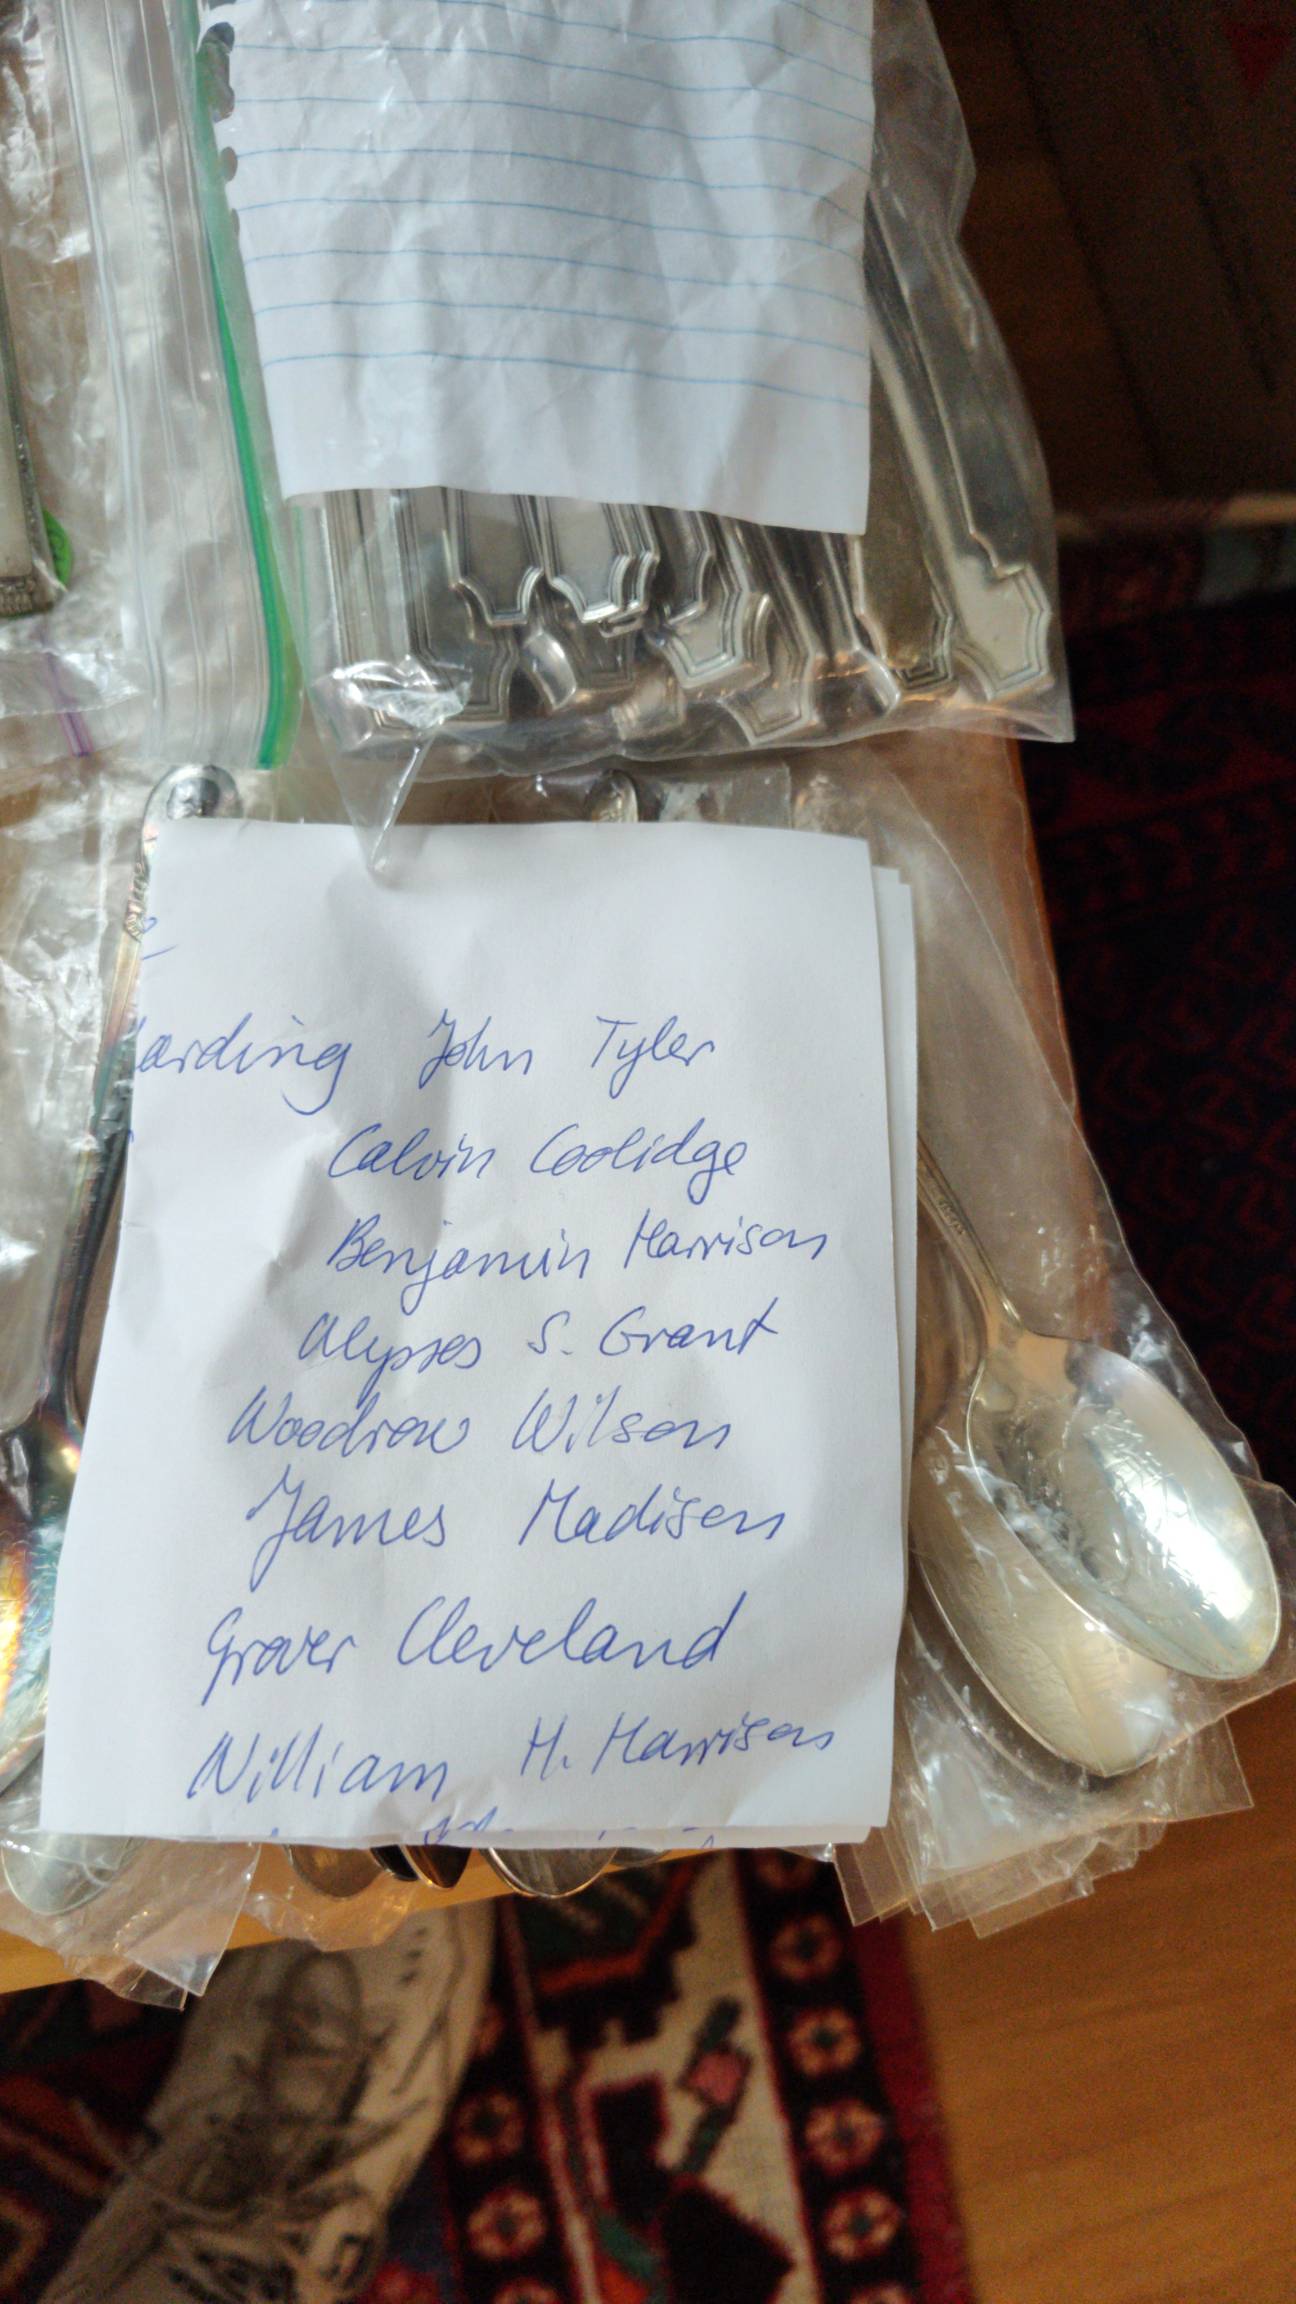 Harding John Tyler
Calvin Coolidge
Benjamin Harrison
Ulysses S. Grant
Woodrow Wilson
James Madison
Grover Cleveland
William H. Harrison